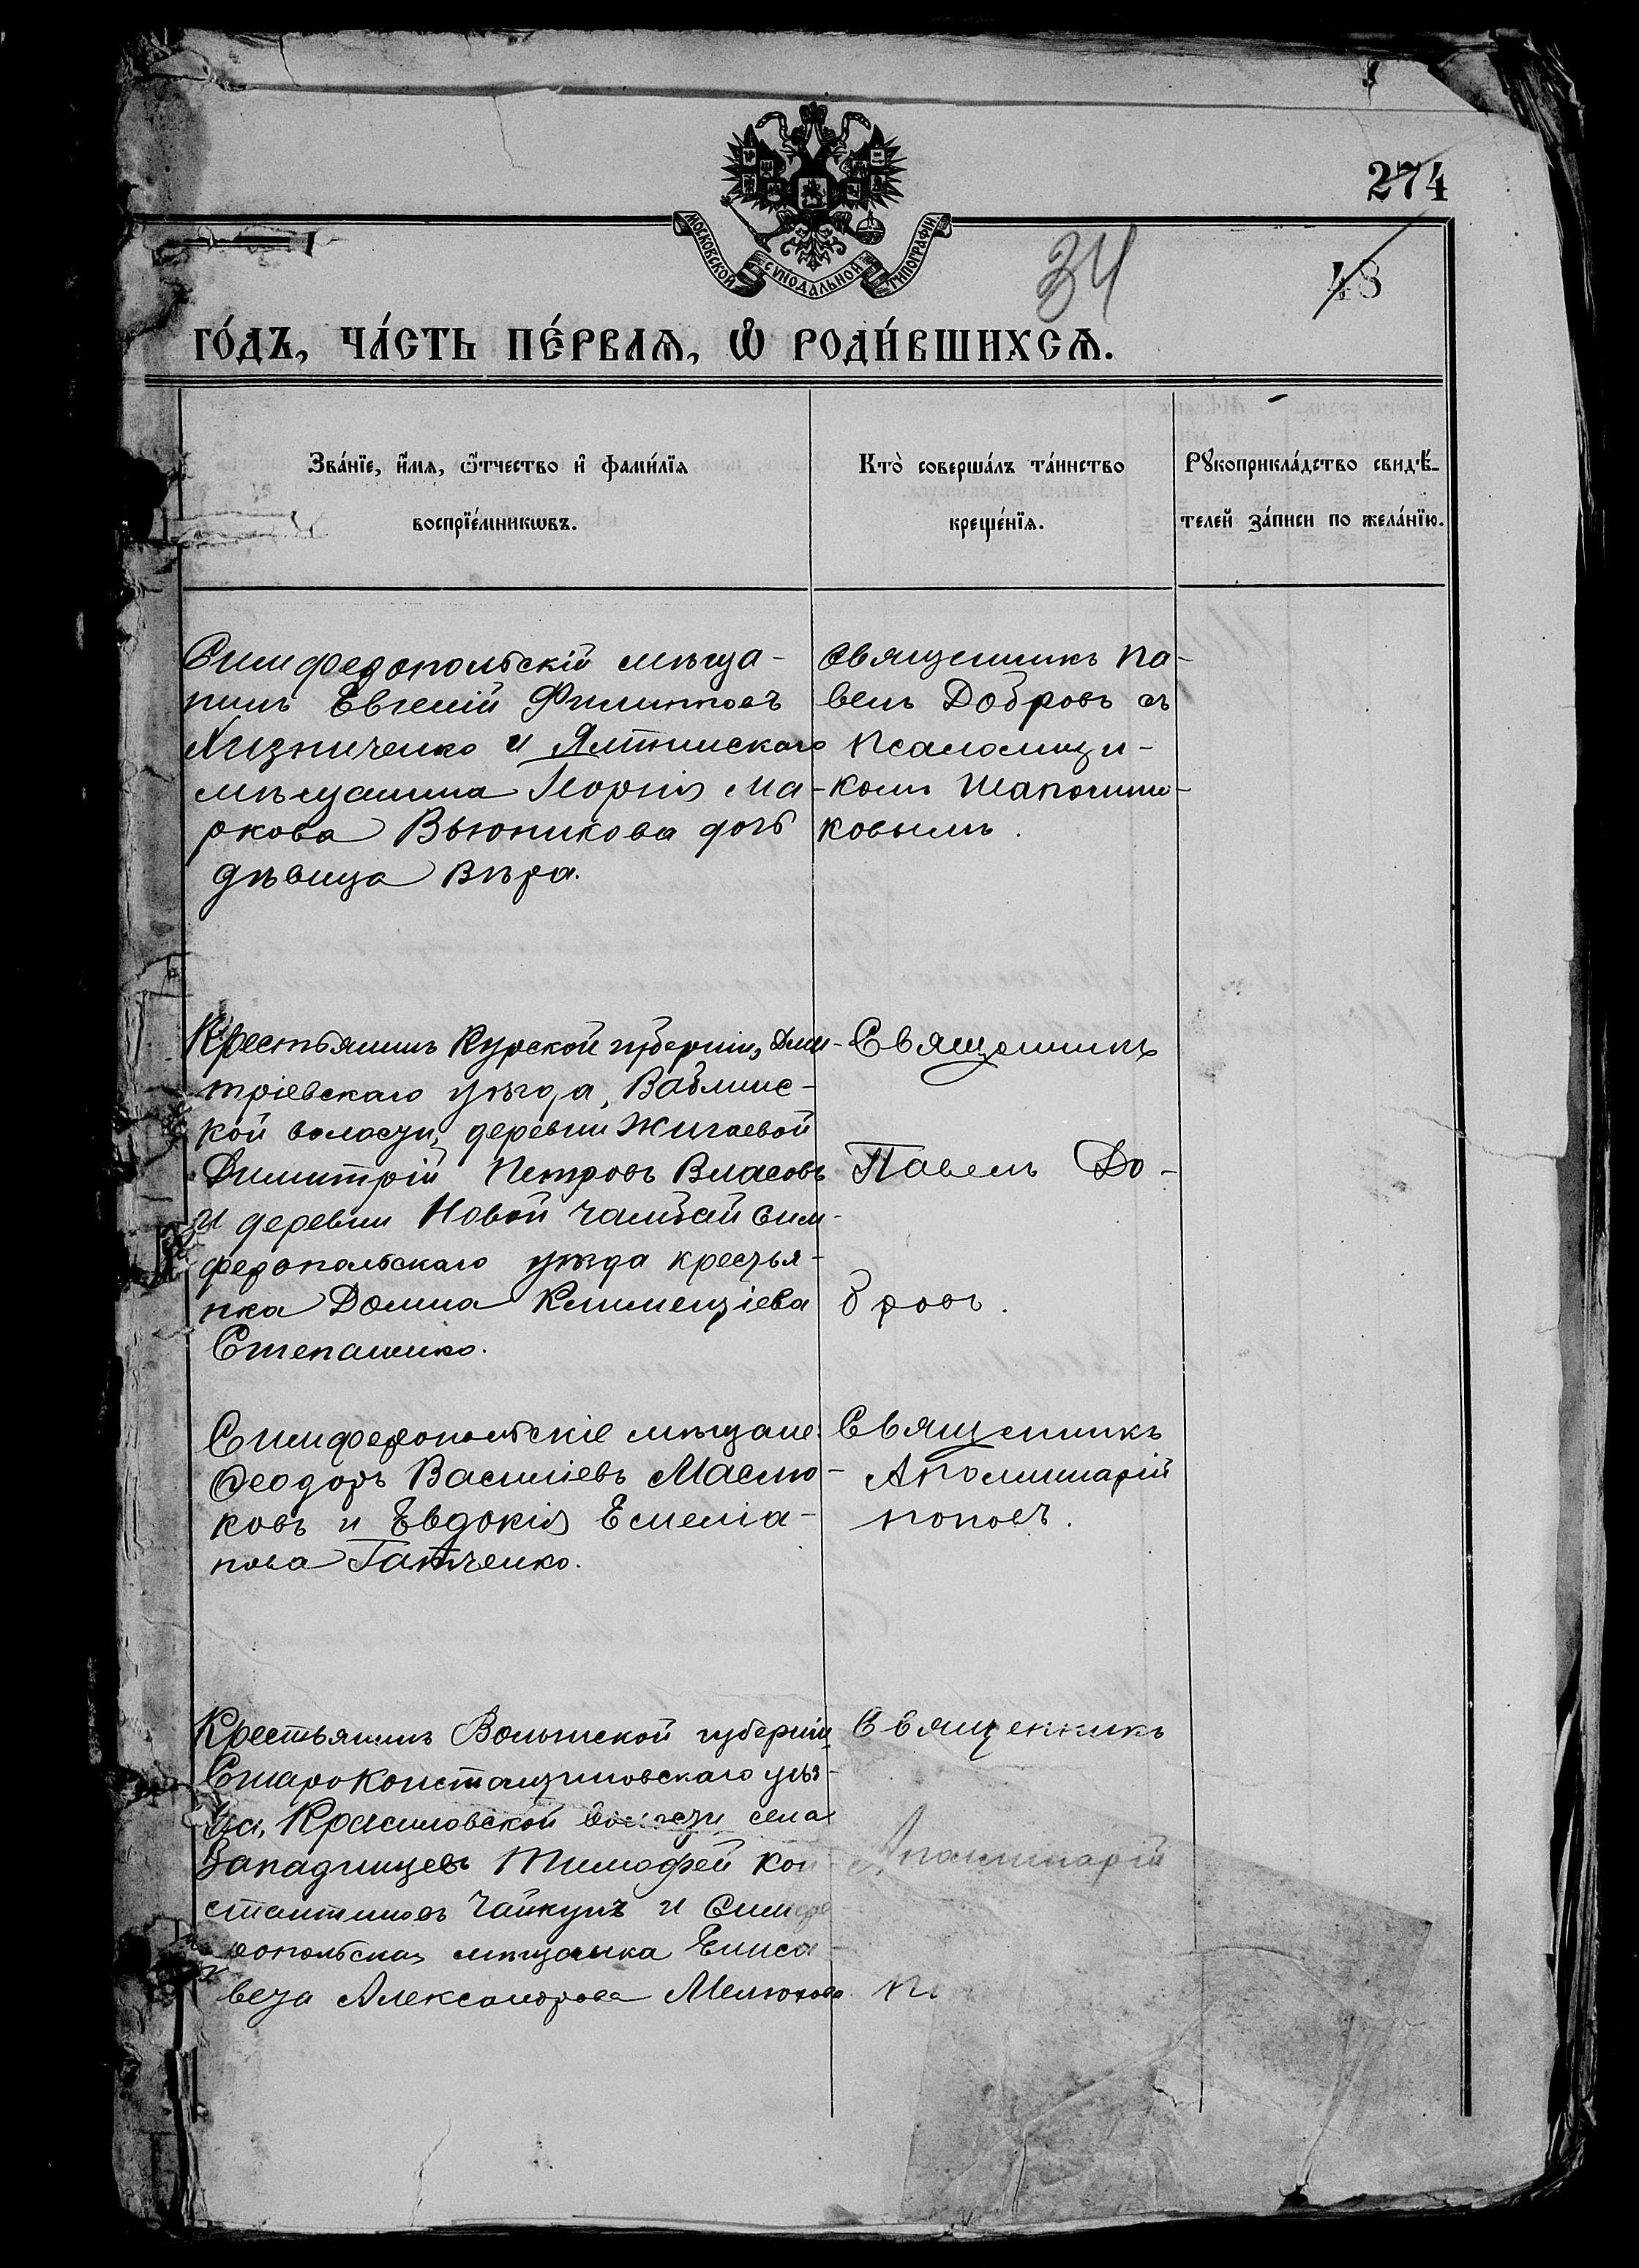 274
МОСКОВСКОЙ СѴНОДАЛЬНОЙ ТИПОГРАФІИ
34
48
ГО́ДЪ, ЧА́СТЬ ПЕ́РВАѦ, Ѡ҆ РОДИ́ВШИХСѦ.
Зва́нїе, и҆́мѧ, ѻ҆́тчество и҆ фами́лїѧ
воспрїе́мникѡвъ.
Кто̀ соверша́лъ та́инство
креще́нїѧ.
Рꙋкоприкла́дство свидѣ́-
телей за́писи по жела́нїю.
Симферопольскій мѣща-
нинъ Евгеній Филиповъ
Хизниченко и Ялтинскаго
мѣщанина Георгія Ма-
ркова Вьюникова дочь
дѣвица Вѣра.
Священникъ Па-
велъ Добровъ съ
псаломщи-
комъ Шапошни-
ковымъ.
Крестьянинъ Курской губерніи, Дми-
тріевскаго уѣзда, Ваблинс-
кой волости, деревни Жигаевой
Димитрій Петровъ Власовъ
и деревни Новой Чамбай Сим-
феропольскаго уѣзда крестья-
нка Домна Климентіева
Степаненко.
Священникъ
Павелъ До-
бровъ.
Симферопольскіе мѣщане:
Ѳеодоръ Василіевъ Маслю-
ковъ и Евдокія Емеліа-
нова Гатченко.
Священникъ
Аполлинарій
Поповъ.
Крестьянинъ Волынской губерніи,
Староконстантиновскаго уѣз-
да, Красиловской волости села
Западинцевъ Тимофей Кон-
стантиновъ Чайкунъ и Симфе-
ропольская мѣщанка Елиса-
вета Александрова Мелюхова.
Священникъ
Аполлинарій